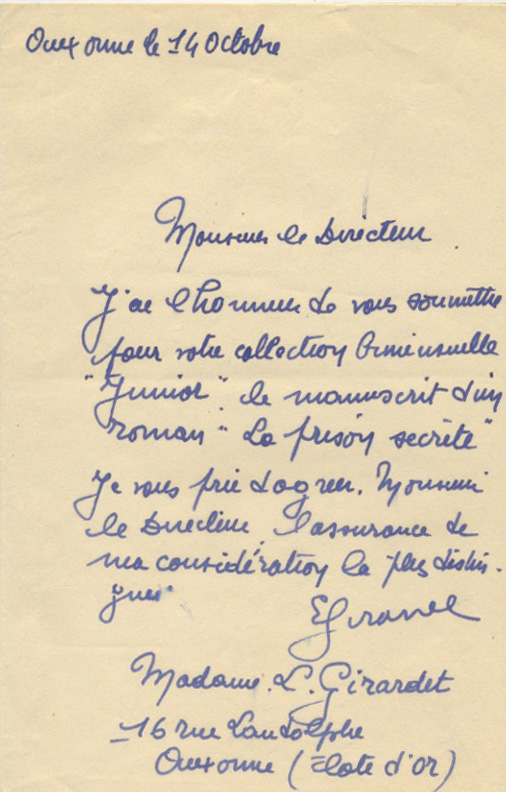 Auxonne le 14 Octobre
Monsieur le Directeur
J'ai l'honneur de vous soumettre
pour votre collection bimensuelle
"Junior" le manuscrit d'un
roman "La prison secrète"
Je vous prie d'agréer, Monsieur
le Directeur, l'assurance de
ma considération la plus distin-
guée
Madame. L. Girardet
16 rue Landolphe
Auxonne (Côte d'or)